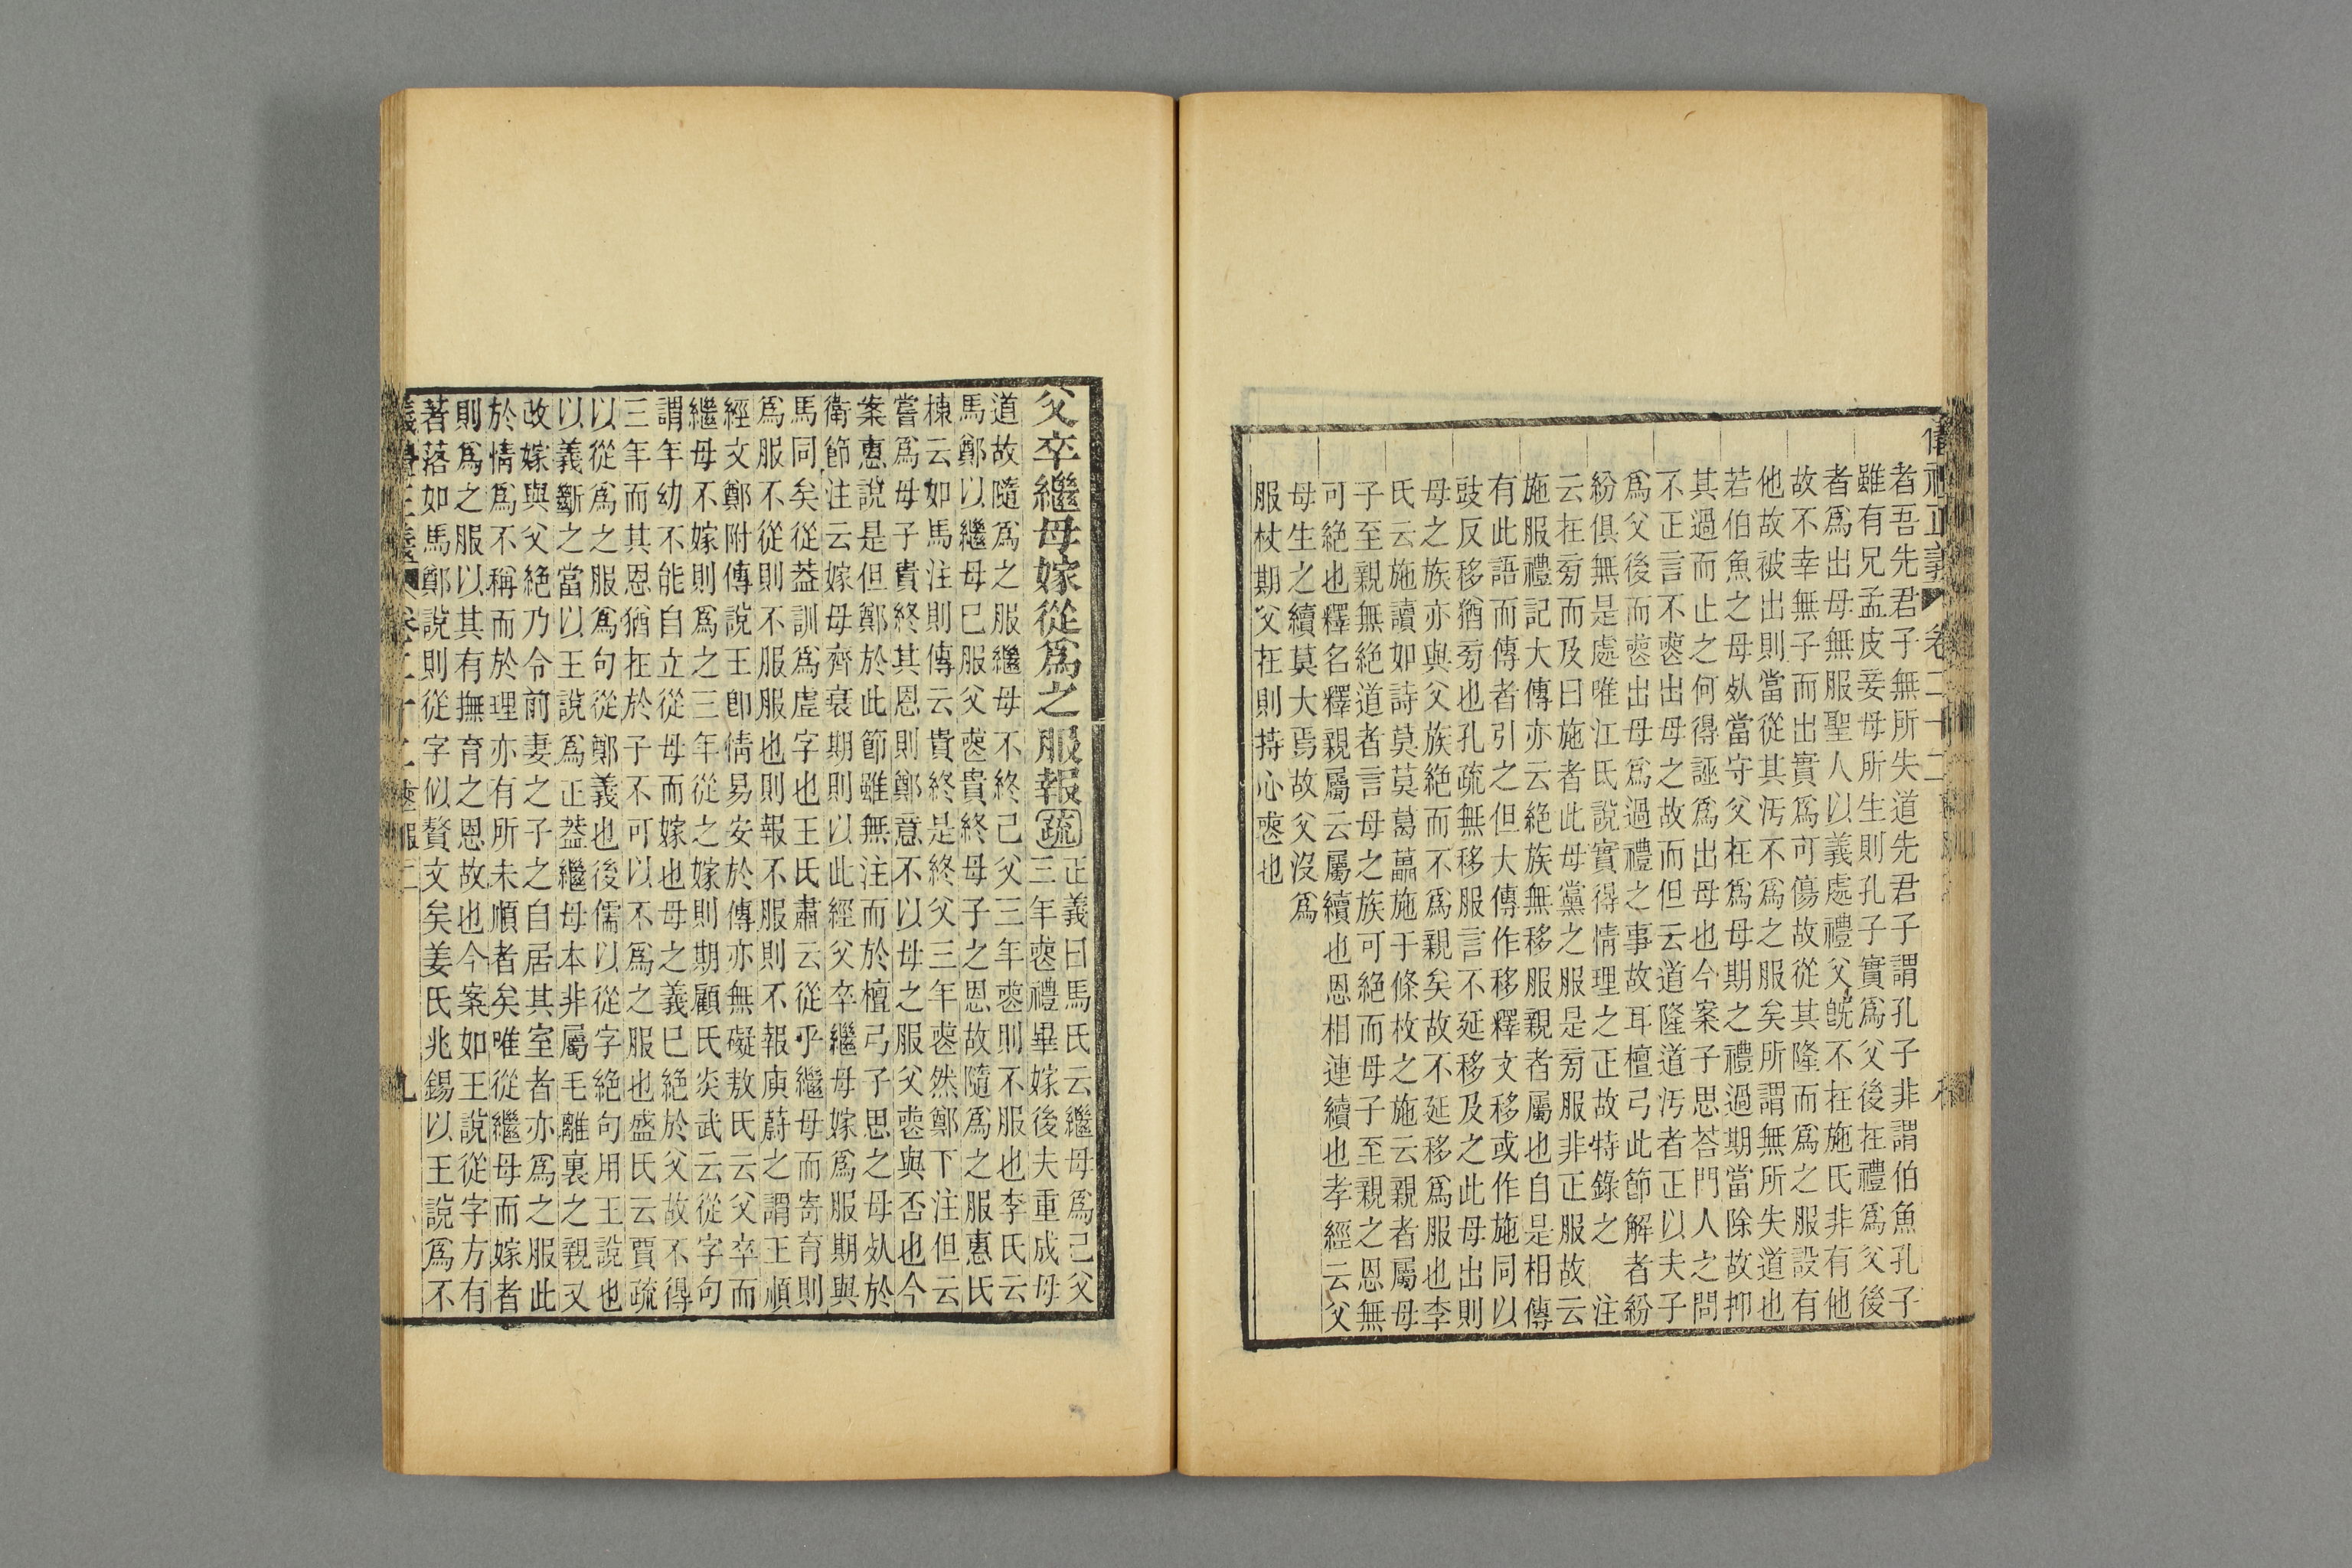 儀禮正義 卷二十二
者吾先君子無所失道先君子謂孔子非謂伯魚孔子
雖有兄孟皮妾母所生則孔子實爲父後在禮爲父後
者爲出母無服聖人以義處禮父旣不在施氏非有他
故不幸無子而出實爲可傷故從其隆而爲之服設有
他故被出則當從其汚不爲之服矣所謂無所失道也
若伯魚之母死當守父在爲母期之禮過期當除故抑
其過而止之何得誣爲出母也今案子思荅門人之問
不正言不喪出母之故而但云道隆道汚者正以夫子
爲父後而喪出母爲過禮之事故耳檀弓此節解者紛
紛俱無是處唯江氏說實得情理之正故特錄之 注
云在旁而及曰施者此母黨之服是旁服非正服故云
施服禮記大傳亦云絕族無移服親者屬也自是相傳
有此語而傳者引之但大傳作移釋文移或作施同以
豉反移猶旁也孔疏無移服言不延移及之此母出則
母之族亦與父族絕而不爲親矣故不延移爲服也李
氏云施讀如詩莫莫葛藟施于條枚之施云親者屬母
子至親無絕道者言母之族可絕而母子至親之恩無
可絕也釋名釋親屬云屬續也恩相連續也孝經云父
母生之續莫大焉故父沒爲
服杖期父在則持心喪也
父卒繼母嫁從爲之服報疏
正義曰馬氏云繼母爲己父
三年喪禮畢嫁後夫重成母
道故隨爲之服繼母不終己父三年喪則不服也李氏云
馬鄭以繼母已服父喪貴終母子之恩故隨爲之服惠氏
棟云如馬注則傳云貴終是終父三年喪然鄭下注但云
嘗爲母子貴終其恩則鄭意不以母之服父喪與否也今
案惠說是但鄭於此節雖無注而於檀弓子思之母死於
衛節注云嫁母齊衰期則以此經父卒繼母嫁爲服期與
馬同矣從葢訓爲虛字也王氏肅云從乎繼母而寄育則
爲服不從則不服服也則報不服則不報庾蔚之謂王順
經文鄭附傳說王卽情易安於傳亦無礙敖氏云父卒而
繼母不嫁則爲之三年從之嫁則期顧氏炎武云從字句
謂年幼不能自立從母而嫁也母之義已絕於父故不得
三年而其恩猶在於子不可以不爲之服也盛氏云賈疏
以從爲之服爲句從鄭義也後儒以從字絕句用王說也
以義斷之當以王說爲正葢繼母本非屬毛離裏之親又
改嫁與父絕乃令前妻之子之自居其室者亦爲之服此
於情爲不稱而於理亦有所未順者矣唯從繼母而嫁者
則爲之服以其有撫育之恩故也今案如王說從字方有
著落如馬鄭說則從字似贅文矣姜氏兆錫以王說爲不
儀禮正義 卷二十二 喪服二 九